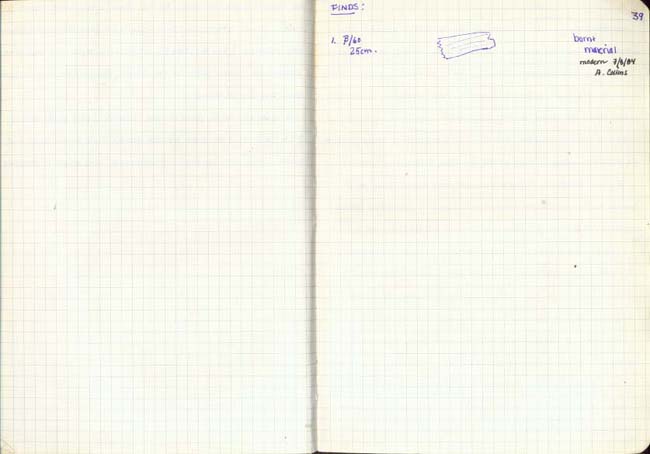 FINDS:
39
1. P/60
25cm.
burnt
material
modern 7/8/84
A. Collins